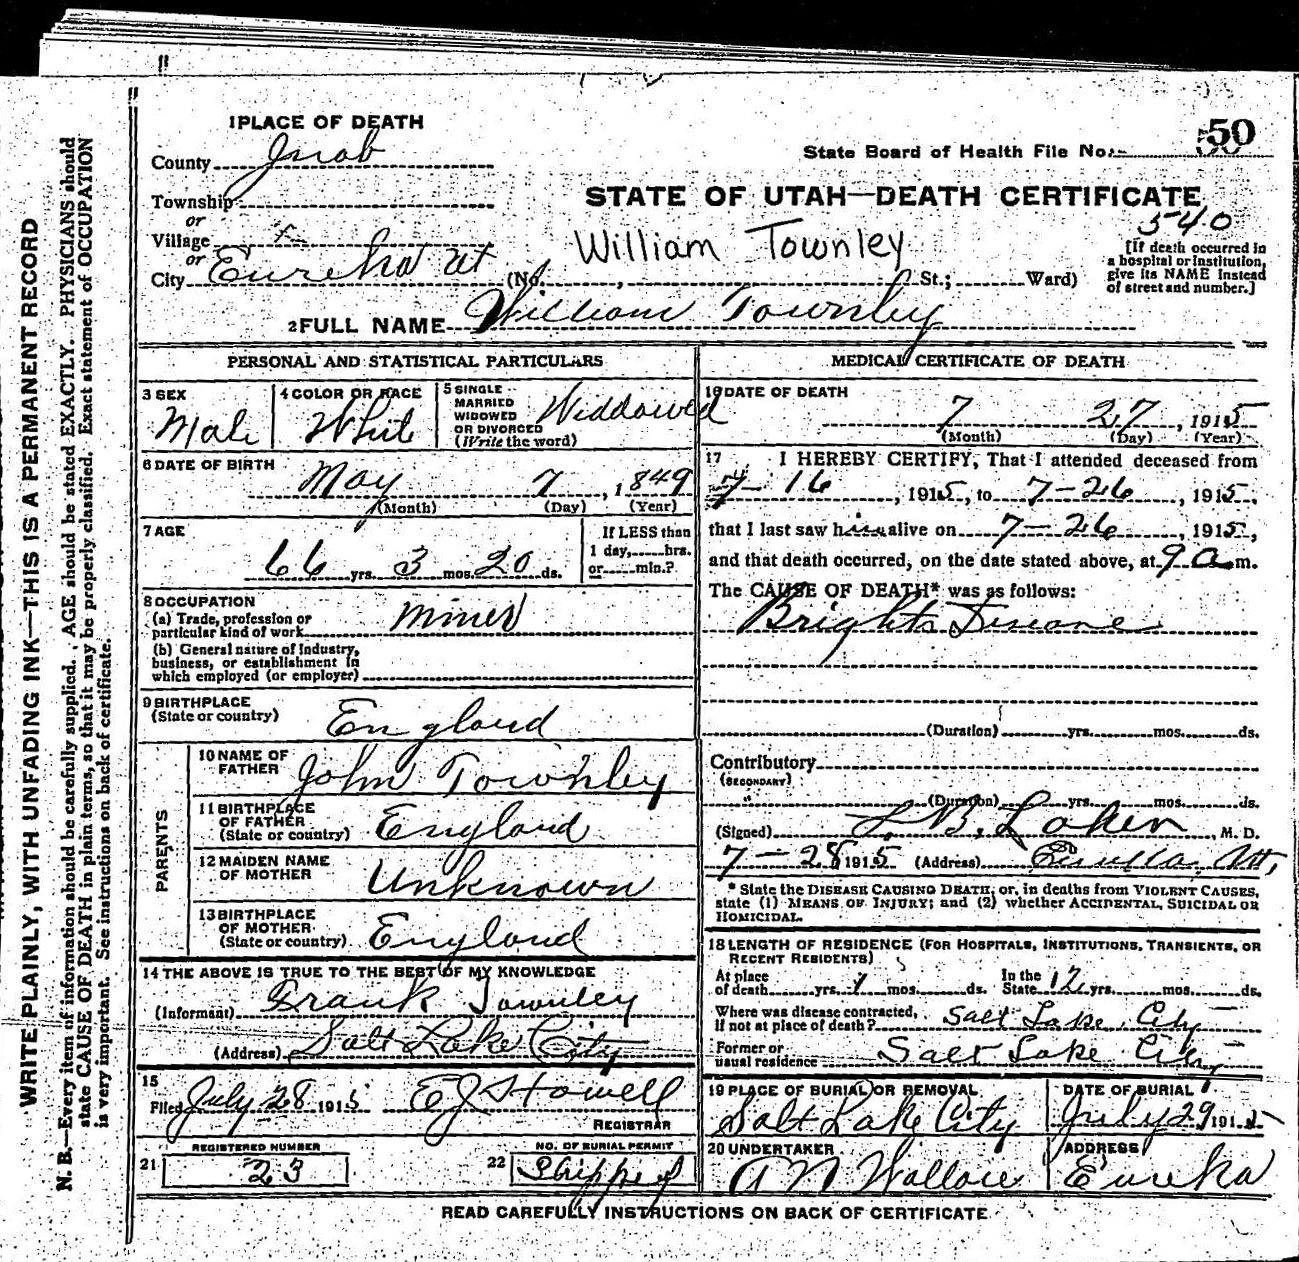 1 PLACE OF DEATH
County Juab
Township
or
Village
or
City Eureka Ut (No. , St.; Ward)
State Board of Health File No. 50
STATE OF UTAH—DEATH CERTIFICATE
540
William Townley
[If death occurred in
a hospital or institution,
give its NAME instead
of street and number.]
2 FULL NAME William Townley
PERSONAL AND STATISTICAL PARTICULARS
3 SEX
Male
4 COLOR OR RACE
White
5 SINGLE
MARRIED
WIDOWED
OR DIVORCED
(Write the word)
Widdowed
6 DATE OF BIRTH
May 7, 1849
(Month) (Day) (Year)
7 AGE
66 yrs. 3 mos. 20 ds.
If LESS than
1 day, hrs.
or min.?
8 OCCUPATION
(a) Trade, profession or
particular kind of work
Miner
(b) General nature of Industry,
business, or establishment in
which employed (or employer)
9 BIRTHPLACE
(State or country)
England
PARENTS
10 NAME OF
FATHER
John Townley
11 BIRTHPLACE
OF FATHER
(State or country)
England
12 MAIDEN NAME
OF MOTHER
Unknown
13 BIRTHPLACE
OF MOTHER
(State or country)
England
14 THE ABOVE IS TRUE TO THE BEST OF MY KNOWLEDGE
(Informant) Frank Townley
(Address) Salt Lake City
15
Filed July 28 1915 E J Howell
REGISTRAR
REGISTERED NUMBER
21 23
NO. OF BURIAL PERMIT
22 Shipped
MEDICAL CERTIFICATE OF DEATH
16 DATE OF DEATH
7 27, 1915
(Month) (Day) (Year)
17 I HEREBY CERTIFY, That I attended deceased from
7-16, 1915, to 7-26, 1915,
that I last saw him alive on 7-26, 1915,
and that death occurred, on the date stated above, at 9 a m.
The CAUSE OF DEATH* was as follows:
Brights Disease
(Duration) yrs. mos. ds.
Contributory
(SECONDARY)
(Duration) yrs. mos. ds.
(Signed) , M. D.
7-28 1915 (Address) Eureka, Ut,
* State the DISEASE CAUSING DEATH, or, in deaths from VIOLENT CAUSES,
state (1) MEANS OF INJURY; and (2) whether ACCIDENTAL, SUICIDAL OR
HOMICIDAL.
18 LENGTH OF RESIDENCE (FOR HOSPITALS, INSTITUTIONS, TRANSIENTS, OR
RECENT RESIDENTS)
At place
of death yrs. mos. ds.
In the
State 12 yrs. mos. ds.
Where was disease contracted,
if not at place of death? Salt Lake City
Former or
usual residence Salt Lake City
19 PLACE OF BURIAL OR REMOVAL
Salt Lake City
DATE OF BURIAL
July 29 1915
20 UNDERTAKER
Wallace
ADDRESS
Eureka
READ CAREFULLY INSTRUCTIONS ON BACK OF CERTIFICATE
WRITE PLAINLY, WITH UNFADING INK—THIS IS A PERMANENT RECORD
N. B.—Every item of information should be carefully supplied. AGE should be stated EXACTLY. PHYSICIANS should
state CAUSE OF DEATH in plain terms, so that it may be properly classified. Exact statement of OCCUPATION
is very important. See instructions on back of certificate.